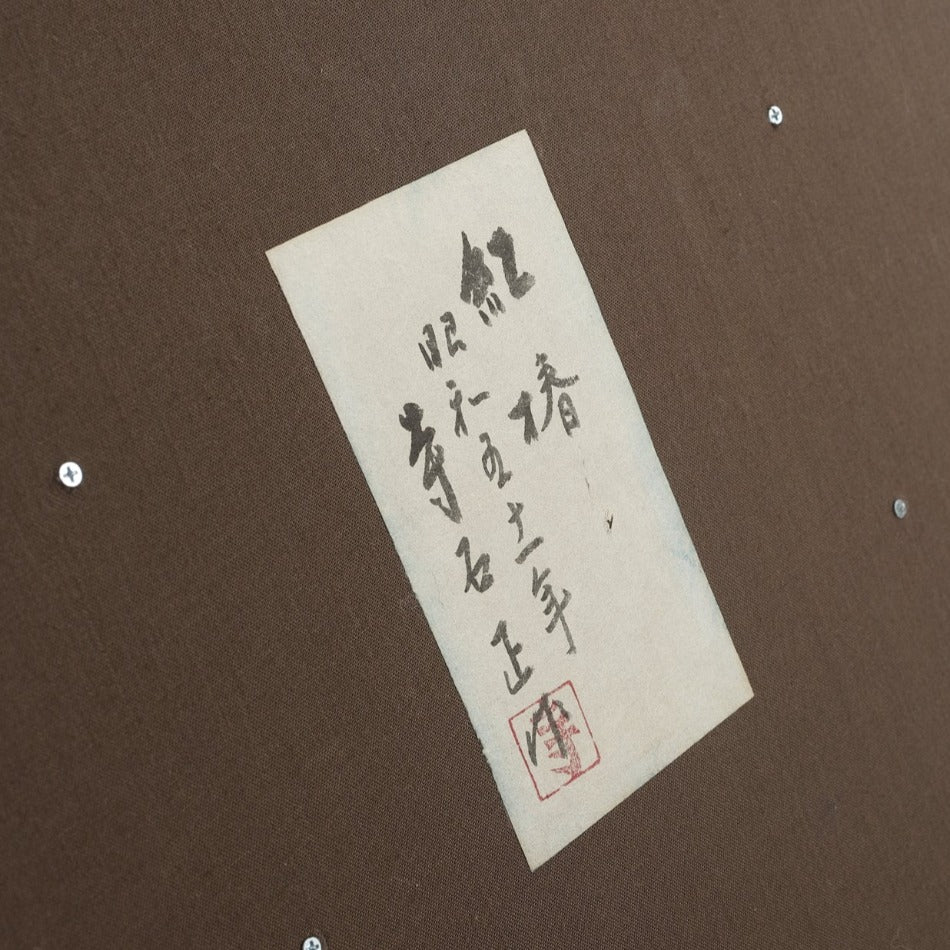 紅椿
昭和五十二年
寺石正作